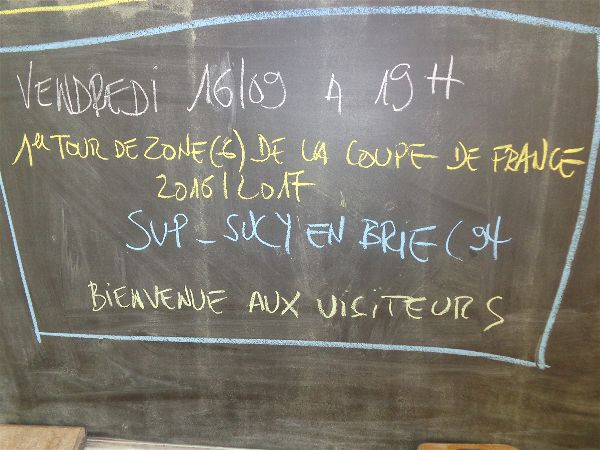 VENDREDI 16/09 A 19H
1er TOUR DE ZONE (6) DE LA COUPE DE FRANCE
2016/2017
SUP - SUCY EN BRIE (94
BIENVENUE AUX VISITEURS